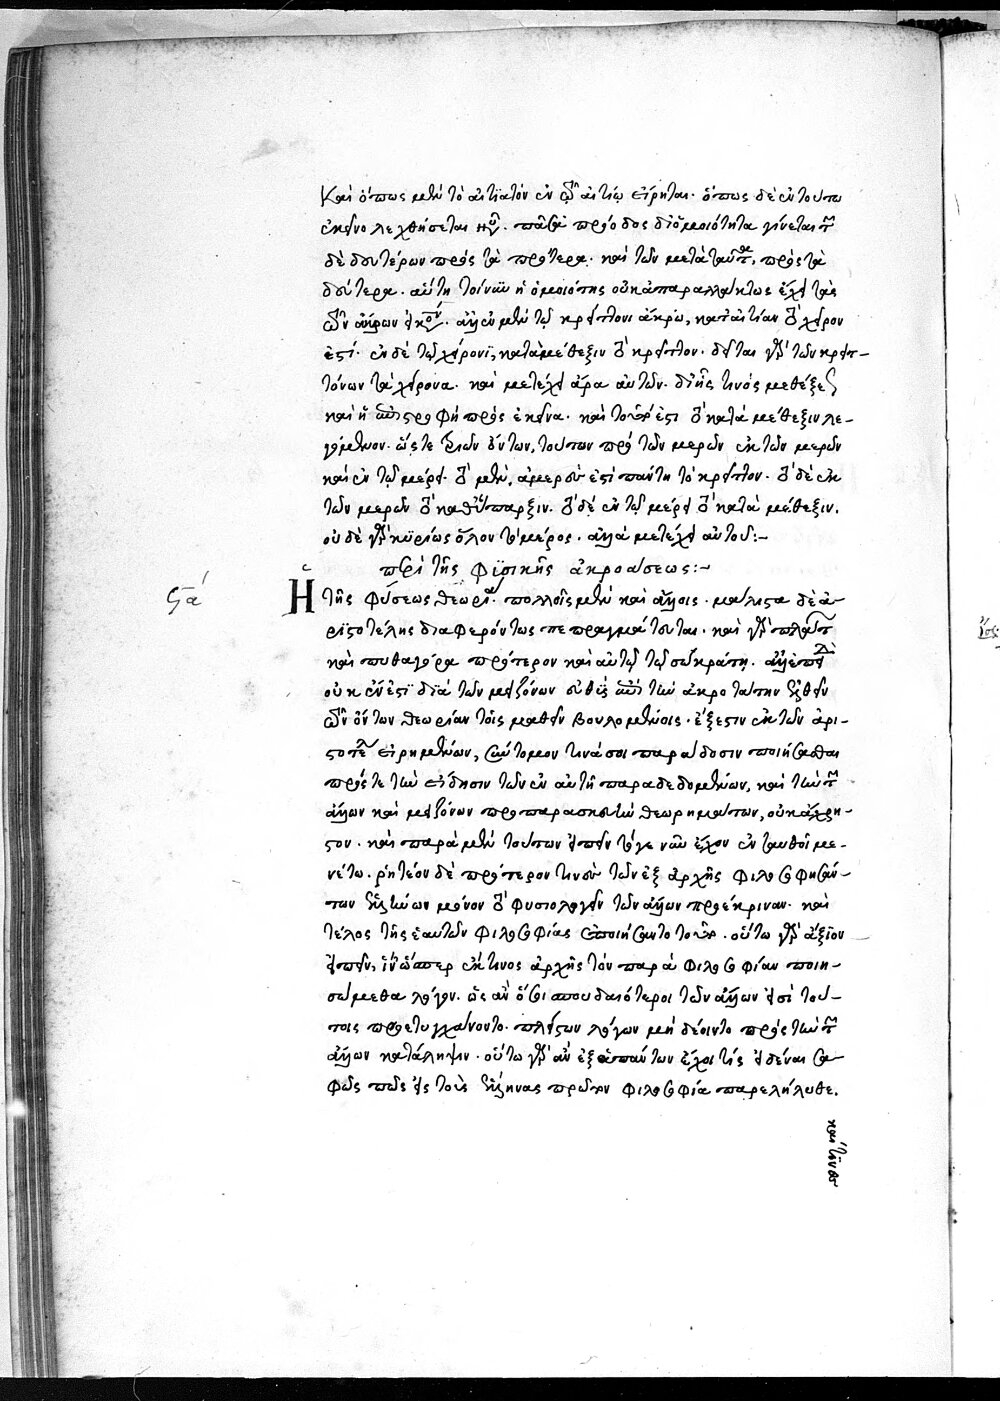 Καὶ ὅπως μὲν τὸ αἰτιατὸν ἐν τῷ αἰτίῳ εἴρηται. ὅπως δὲ ἐν τούτῳ
ἐκεῖνο λεχθήσεται νῦν. πᾶσα πρόοδος δι' ὁμοιότητα γίνεται τῶν
δὲ δευτέρων πρὸς τὰ πρότερα. καὶ τῶν μετὰ ταῦτα, πρὸς τὰ
δεύτερα. αὕτη τοίνυν ἡ ὁμοιότης οὐκ ἀπαραλλάκτως ἔχει τὰς
τῶν ἄκρων εἰκόνας. ἀλλ' ἐν μὲν τῷ κρείττονι ἄκρῳ, κατ' αἰτίαν τὸ χεῖρον
ἐστί. ἐν δὲ τῷ χείρονι, κατὰ μέθεξιν τὸ κρεῖττον. δεῖται γὰρ τῶν κρειτ-
τόνων τὰ χείρονα. καὶ μετέχει ἄρα αὐτῶν. διῆς τινὸς μεθέξεως
καὶ ἡ ἐπιστροφὴ πρὸς ἐκεῖνα. καὶ τοῦτό ἐστι τὸ κατὰ μέθεξιν λε-
γόμενον. ὥστε τριῶν ὄντων, τούτων πρὸ τῶν μερῶν ἐκ τῶν μερῶν
καὶ ἐν τῷ μέρει. τὸ μὲν, ἀμεροῦς ἐστὶ παντη τὸ κρεῖττον. τὸ δὲ ἐκ
τῶν μερῶν τὸ καθ' ὕπαρξιν. τὸ δὲ ἐν τῷ μέρει τὸ κατὰ μέθεξιν.
οὐδὲ γὰρ κυρίως ὅλον τὸ μέρος. ἀλλὰ μετέχει αὐτοῦ:~
περὶ τῆς φυσικῆς ἀκροάσεως:~
Ἡ τῆς φύσεως θεωρία. πολλοῖς μὲν καὶ ἄλλοις. μάλιστα δὲ ἀ-
ριστοτέλης διαφερόντως πεπραγμάτευται. καὶ γὰρ πλάτωνι
καὶ πυθαγόρα πρότερον καὶ αὐτῷ τῷ σωκράτη. ἀλλ' ἐπειδὴ
οὐκ ἔνεστι διὰ τῶν μειζόνων εὐθὺς ἐπὶ τὴν ἀκροτάτην ἐλθεῖν
τῶν ὄντων θεωρίαν τοῖς μαθεῖν βουλομένοις. ἔξεστιν ἐκ τῶν ἀρι-
στοτέλει εἰρημένων, σύντομον τινά σοι παράδοσιν ποιήσασθαι
πρός τε τὴν εἴδησιν τῶν ἐν αὐτῇ παραδεδομένων, καὶ τὴν τῶν
ἄλλων καὶ μειζόνων προπαρασκευὴν θεωρημάτων, οὐκ ἄχρη-
στον. καὶ παρὰ μὲν τούτων εἰπεῖν τό γε νῦν ἔχον ἐνταυθοῖ με-
νέτω. ῥητέον δὲ πρότερον τίνος τῶν ἐξ ἀρχῆς φιλοσοφησάν-
των ἑλλήνων μόνον τὸ φυσιολογεῖν τῶν ἄλλων προέκριναν. καὶ
τέλος τῆς ἑαυτῶν φιλοσοφίας ἐποιήσαντο τοῦτο. οὕτω γὰρ ἄξιον
εἰπεῖν, ἵν' ὥσπερ ἔκ τινος ἀρχῆς τὸν παρὰ φιλοσοφίαν ποιη-
σώμεθα λόγον. ὡς ἂν ὅσοι σπουδαιότεροι τῶν ἄλλων εἰσὶ τού-
τοις προετυγχάνοντο. πλειόνων λόγων μὴ δέοιντο πρὸς τὴν τῶν
ἄλλων κατάληψιν. οὕτω γὰρ ἂν ἐξ ἁπάντων ἔχοι τίς εἰδέναι σα-
φῶς πῶς εἰς τοὺς ἕλληνας πρῶτον φιλοσοφία παρελήλυθε.
καὶ τίνες